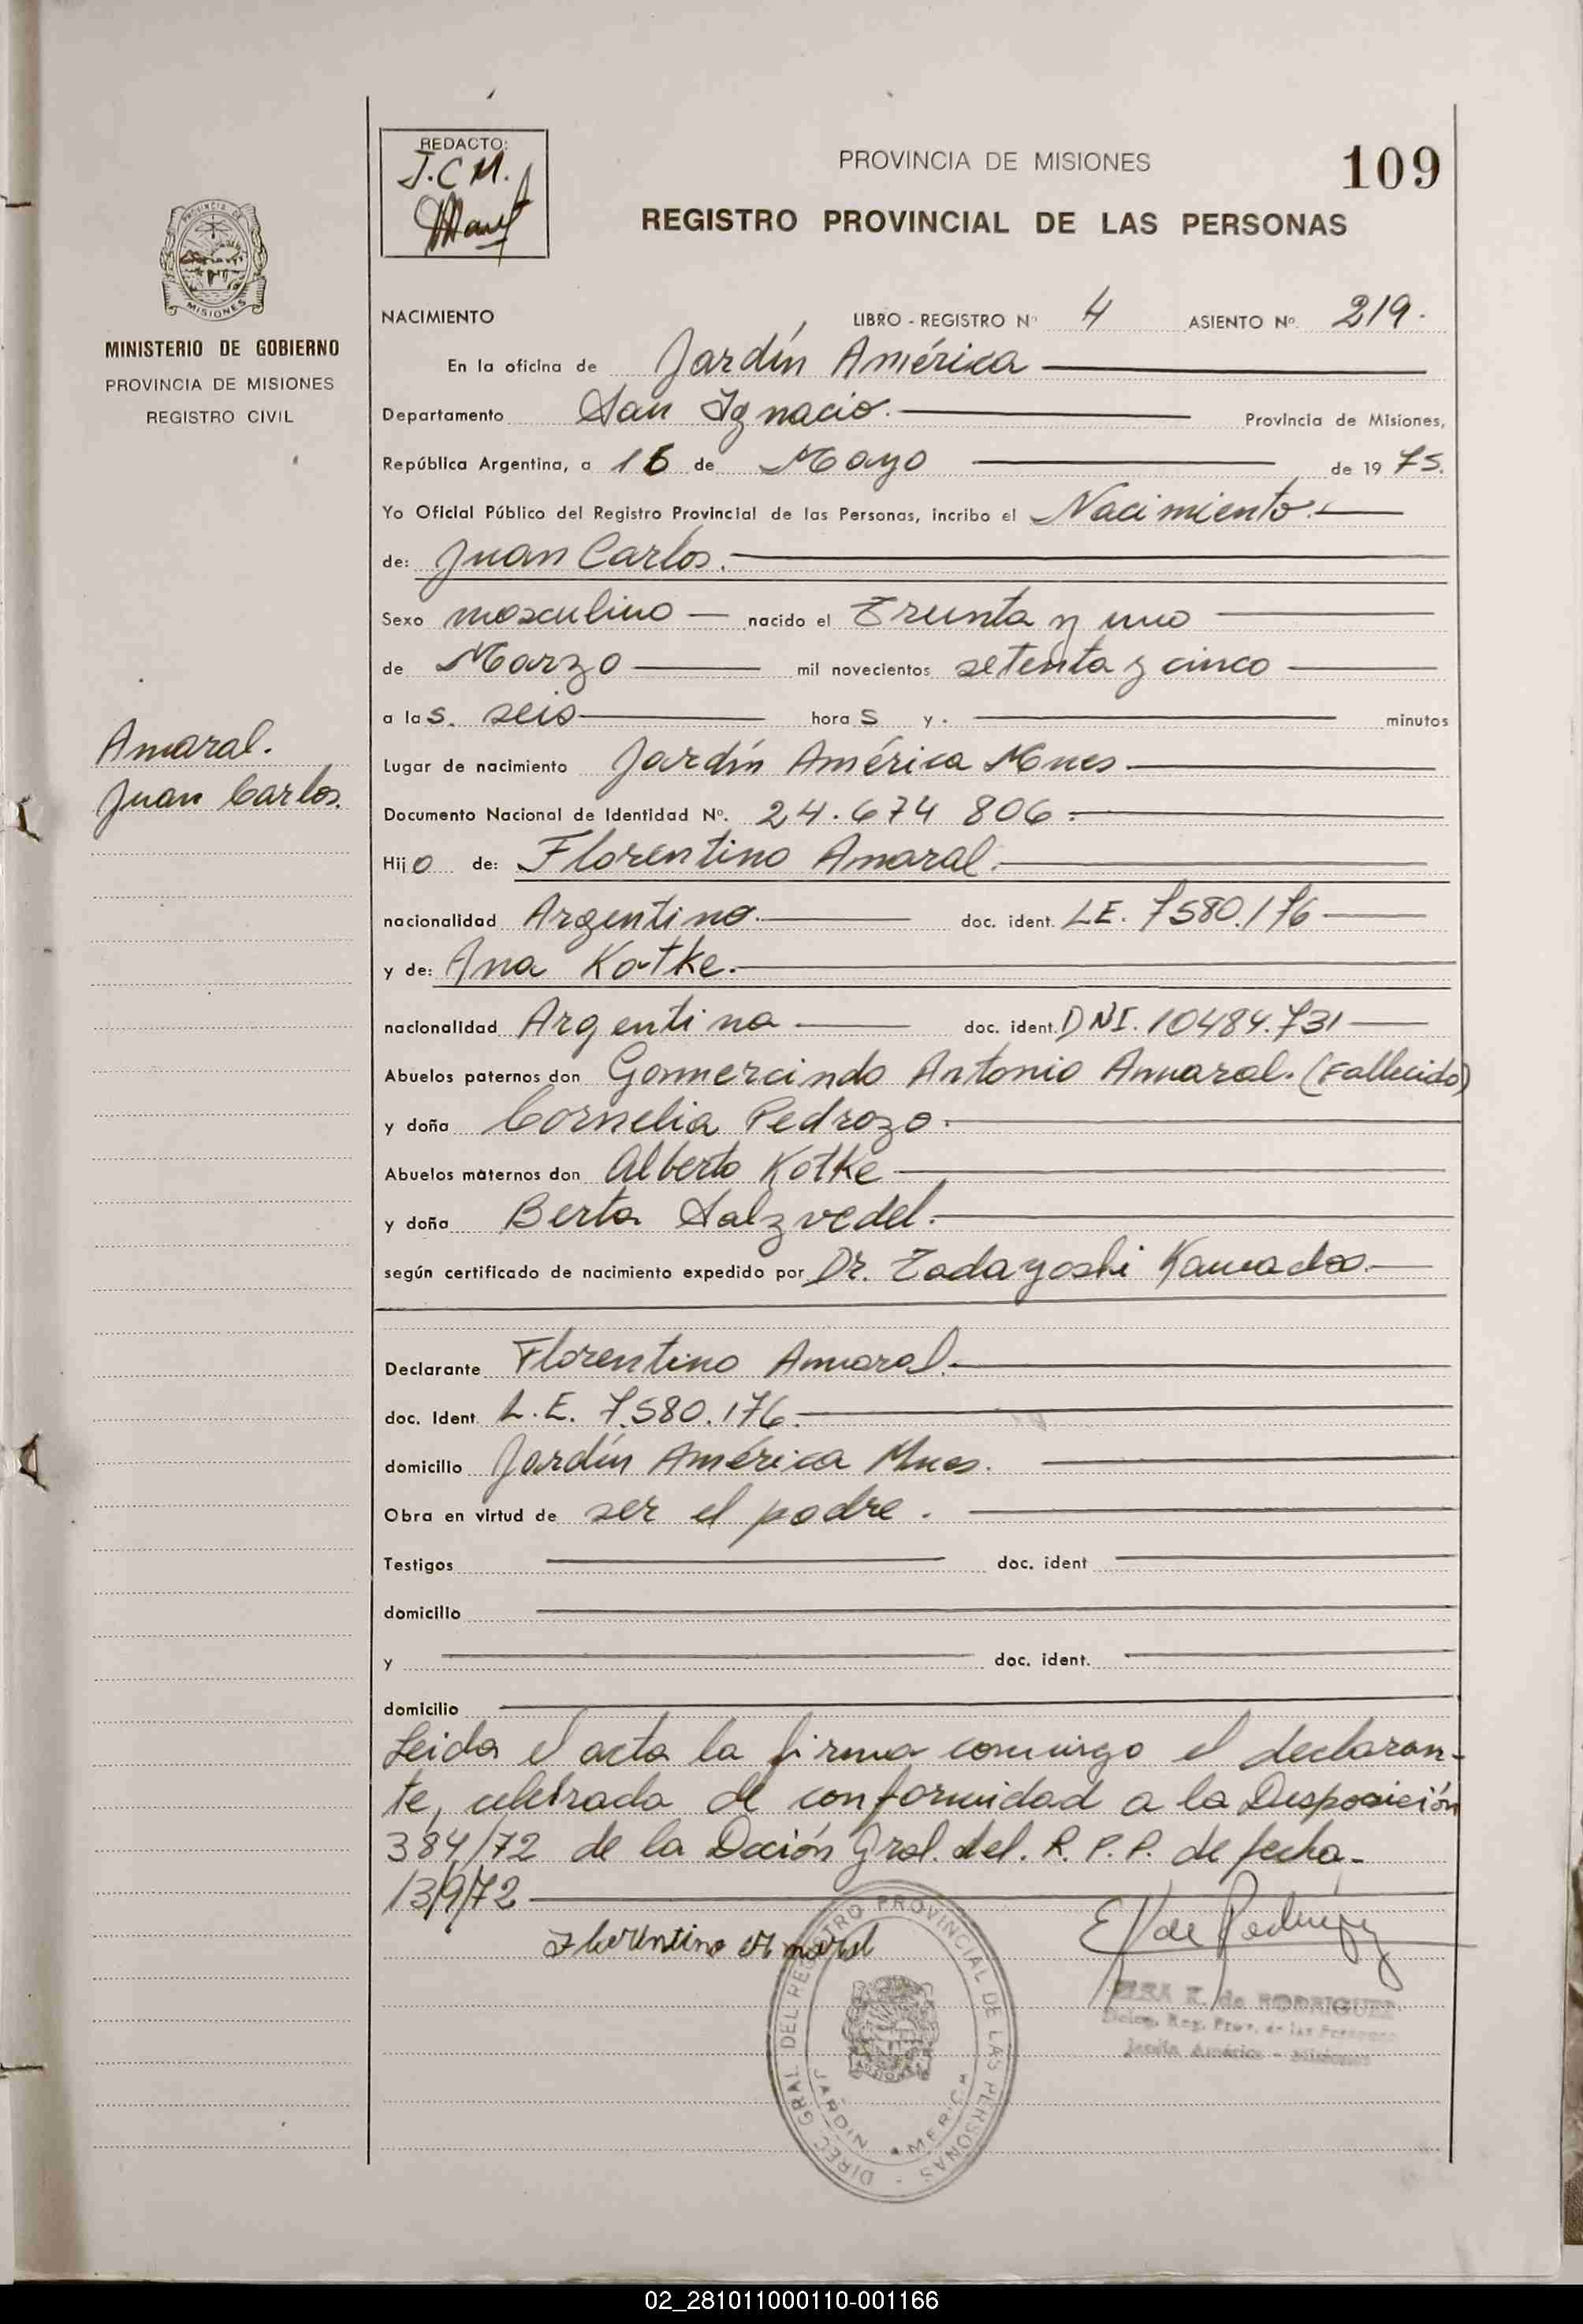 REDACTO:
J.C.M.
PROVINCIA DE MISIONES
109
REGISTRO PROVINCIAL DE LAS PERSONAS
PROVINCIA DE
MISIONES
MINISTERIO DE GOBIERNO
PROVINCIA DE MISIONES
REGISTRO CIVIL
Amaral.
Juan Carlos.
NACIMIENTO LIBRO - REGISTRO Nº 4 ASIENTO Nº 219.
En la oficina de Jardín América
Departamento San Ignacio. Provincia de Misiones,
República Argentina, a 16 de Mayo de 1975.
Yo Oficial Público del Registro Provincial de las Personas, incribo el Nacimiento.
de: Juan Carlos.
Sexo masculino nacido el Treinta y uno
de Marzo mil novecientos setenta y cinco
a las. seis horas y. minutos
Lugar de nacimiento Jardín América Mnes
Documento Nacional de Identidad Nº. 24.674 806.
Hijo de: Florentino Amaral.
nacionalidad Argentino. doc. ident. LE. 7580.176
y de: Ana Kotke.
nacionalidad Argentina doc. ident. DNI. 10484.731
Abuelos paternos don Gomercindo Antonio Amaral. (Fallecido)
y doña Cornelia Pedrozo.
Abuelos maternos don Alberto Kotke
y doña Berta Salzvedel.
según certificado de nacimiento expedido por Dr. Tadayoshi Kamada.
Declarante Florentino Amaral.
doc. Ident. L.E. 7.580.176.
domicilio Jardín América Mnes.
Obra en virtud de ser el padre.
Testigos doc. ident
domicilio
y doc. ident.
domicilio
Leida el acta la firma conmigo el declaran-
te, celebrada de conformidad a la Disposición
384/72 de la Dción Gral. del. R.P.P. de fecha
13/9/72
Florentino Amaral
E K de Rodriguez
ELSA K. de RODRIGUEZ
Deleg. Reg. Prov. de las Personas
Jardín América - Misiones
DIREC GRAL DEL REGISTRO PROVINCIAL DE LAS PERSONAS -
JARDIN AMERICA
02_281011000110-001166